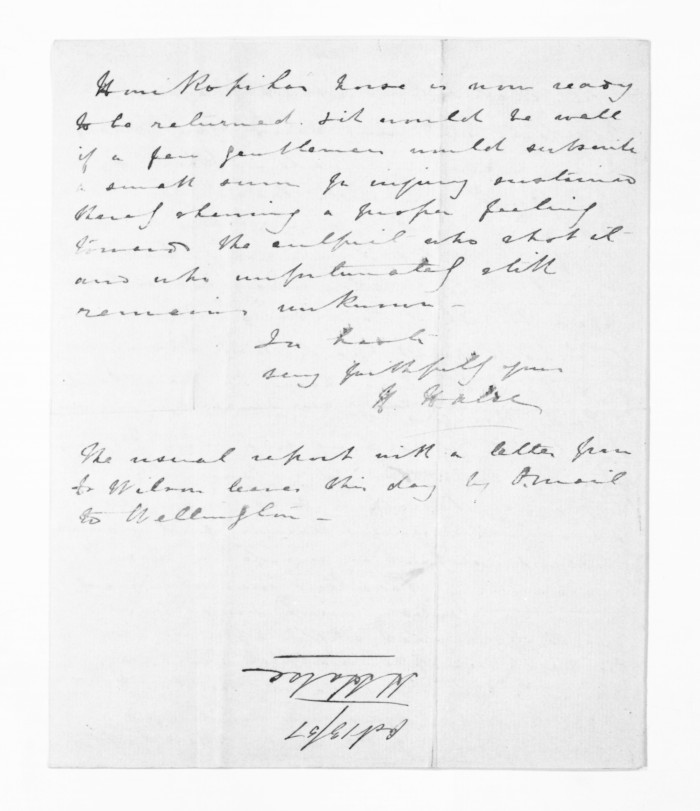 Honi Ropiha's horse is now ready
to be returned. It would be well
if a few gentlemen would subscribe
a small sum for injury sustained
thereby shewing a proper feeling
towards the culprit who shot it
and who unfortunately still
remains unknown –
In haste
very faithfully yours
H. Halse
The usual report with a letter from
Dr Wilson leaves this day by O. mail
to Wellington –
H Halse
Oct 13/57